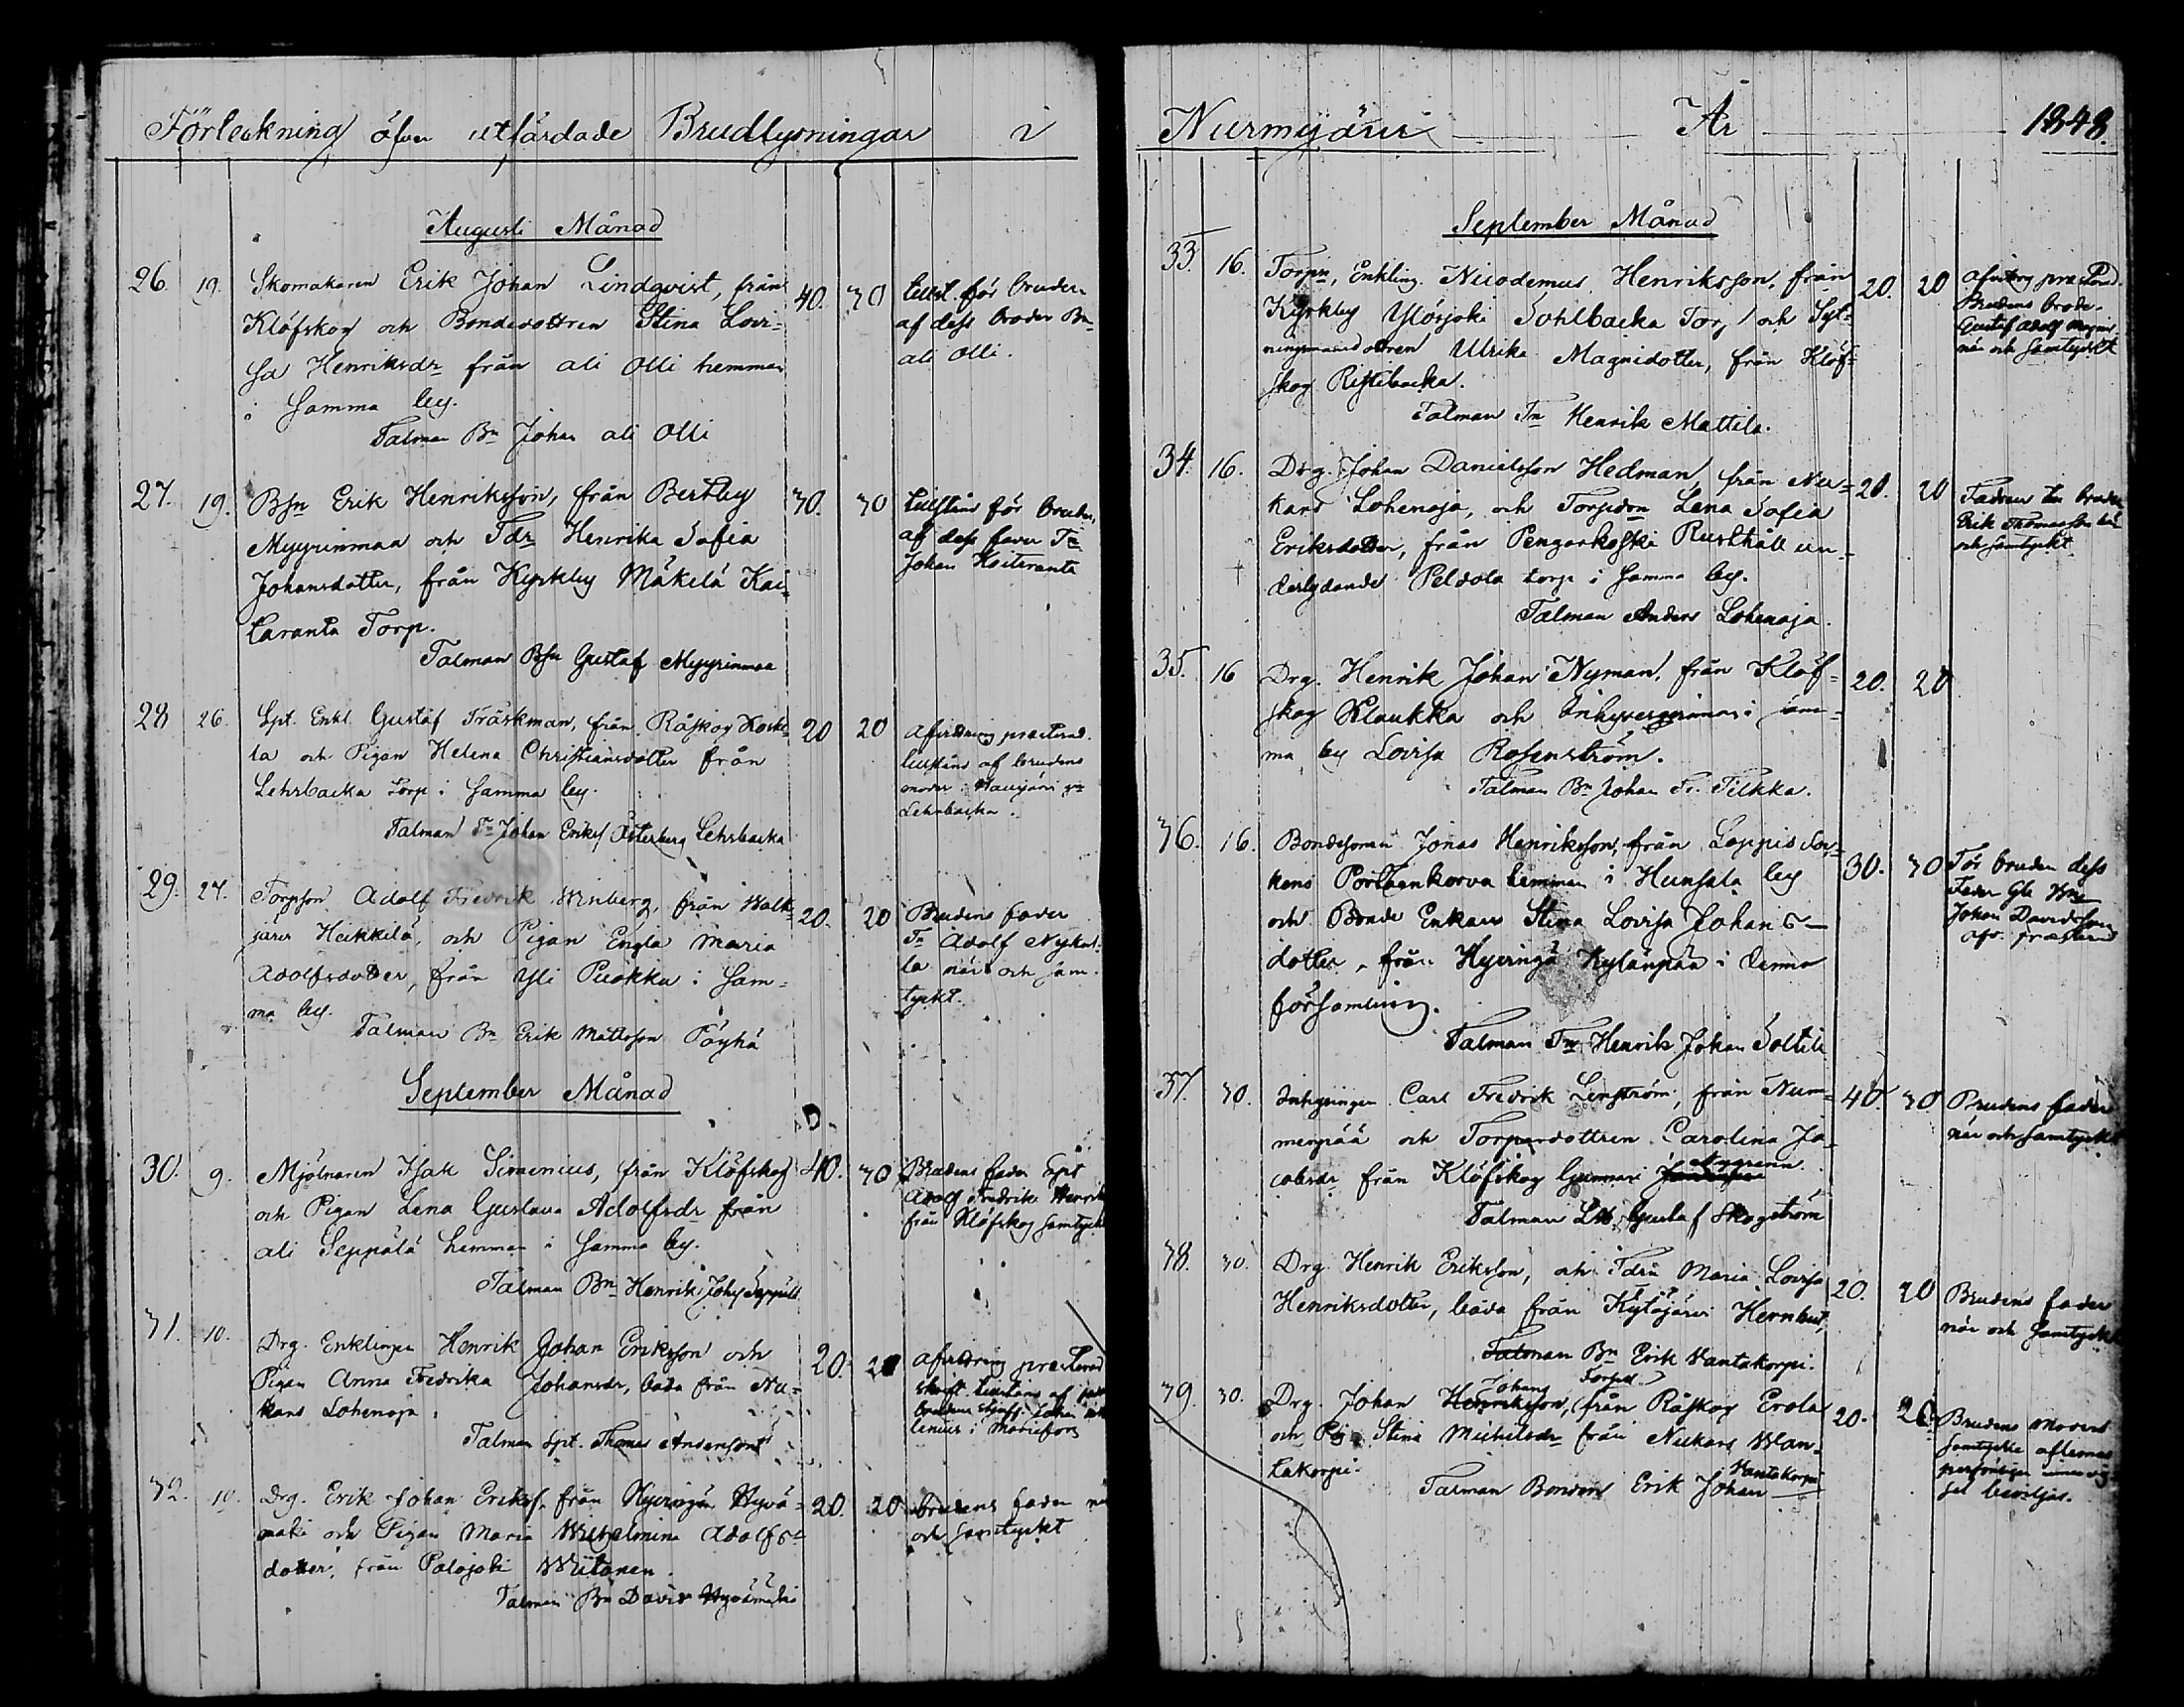 Förteckning öfver utfärdade Brudlysningar i
Augusti Månad
26. 19. Skomakaren Erik Johan Lindqvist, från 40. 30
Klöfskog och Bondedottren Stina Lovi-
sa Henriksdr från ali Olli hemman
i samma by.
Talman Bn Johan ali Olli
af dess broder Bn
ali Olli.
27. 19. Bsn Erik Henriksson, från Bertby 30. 30
Myyrinmaa och Tdr Henrika Sofia
Johansdotter, från Kyrkby Mäkelä Kai-
taranta Torp.
Talman Bsn Gustaf Myyrinmaa
Tillstånd för bruden,
af dess fader Tn
Johan
28 26. Spt. Enkl. Gustaf Träskman, från Råskog Koske- 20 20
la och Pigan Helena Christiansdotter från
Lehrbacka Torp i samma by.
Talman Tn Johan Eriks Österberg Lehrbacka
afvittring præsterad.
tillstånd af brudens
moder
Lehrbacka.
29. 27. Torpson Adolf Fredrik Winberg, från Walk- 20. 20
järvi Heikkilä, och Pigan Engla Maria
Adolfsdotter, från Yli Puokka i sam-
ma by.
Talman Bn Erik Mattsson Pöyhä
Brudens fader
Tn Adolf
la när och sam-
tyckt.
September Månad
30. 9. Mjölnaren Isak Simenius, från Klöfskog 40. 30
och Pigan Lena Gustava Adolfsdr från
ali Seppälä hemman i samma by.
Talman Bn Henrik Johs Seppälä
Brudens fader Spt
Adolf Fredrik
från Klöfskog samtyckt
31. 10. Drg. Enklingen Henrik Johan Eriksson och 20. 20
Pigan Anna Fredrika Johansdr, båda från Nu-
kars Lohenoja.
Talman Spt. Thomas Andersson
afvittring præsterad
skrift. tillstånd af
brudens styff. Johan
i Mariefors
32. 10. Drg. Erik Johan Eriks. från Hyvingä Hyvä- 20. 20
mäki och Pigan Maria Wilhelmina Adolfs-
dotter, från Palojoki Wiitanen.
Talman Bn David Hyvämäki
brudens fader när
och samtyckt
Nurmijärvi År 1848.
September Månad
33. 16. Torpn, Enkling. Nicodemus Henriksson, från 20. 20
Kyrkby Ylösjoki Sohlbacka Torp och Syt-
ningsmansdottren Ulrika Magnidotter, från Klöf-
skog Ristibacka.
Talman Tn Henrik Mattila.
afvittring præsterad.
Brudens broder
Gustaf Adolf
när och samtyckt
34. 16. Drg. Johan Danielsson Hedman, från Nu- 20. 20
kars Lohenoja, och Torpdon Lena Sofia
Eriksdotter, från Pengarkoski Rusthåll un-
derlydande Peldola torp i samma by.
Talman Anders Lohenoja.
Fadren till bruden
Erik Thomasson när
och samtyckt
35. 16 Drg. Henrik Johan Nyman, från Klöf- 20. 20
skog Klaukka och Inhysespigan i sam-
ma by Lovisa Rosenström.
Talman Bn Johan Fr. Tilkka.
36. 16. Bondsonen Jonas Henriksson, från Loppis Soc- 30. 30
kens Porttankorva hemman i Hunsala by
och Bonde Enkan Stina Lovisa Johans-
dotter, från Hyvingä Kylänpää i denna
församling.
Talman Tn Henrik Johan Soltila
För bruden dess
fader
Johan Davidsson
afv. præsterad
37. 30. Inhysingen Carl Fredrik Lenström, från Num- 40. 30
menpää och Torparedottren Carolina Ja-
cobsdr från Klöfskog Gunnari Nygrenn
Talman Gustaf Skogström
Brudens fader
när och samtyckt
38. 30. Drg. Henrik Eriksson, och Tdrn Maria Lovisa 20. 20
Henriksdotter, båda från Kytäjärvi
Talman Bn Erik Vantakorpi.
Brudens fader
när och samtyckt
39. 30. Drg. Johan Johans Henriksson, från Råskog Erola 20. 20
och Pig. Stina Michelsdr från Nukars Wan-
takorpi.
Talman Bonden Erik Johan Vantakorpi
Brudens moders
samtycke
personligen